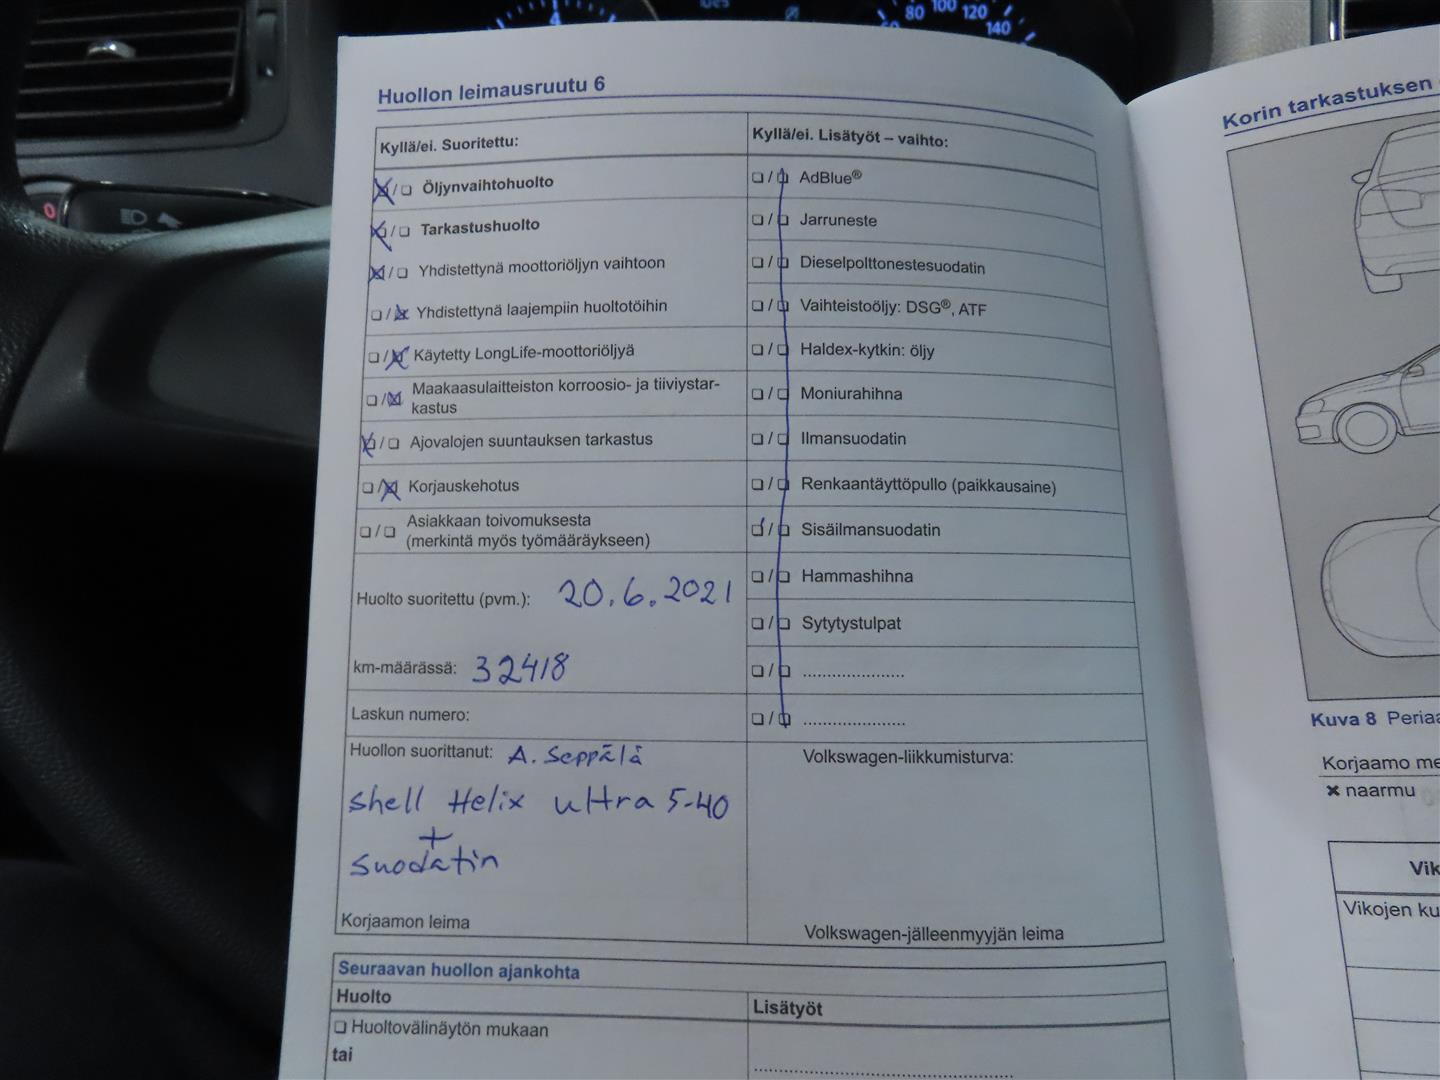 80 100 120
140
Huollon leimausruutu 6
Kyllä/ei. Suoritettu:
❏/❏ Öljynvaihtohuolto
❏/❏ Tarkastushuolto
❏/❏ Yhdistettynä moottoriöljyn vaihtoon
❏/❏ Yhdistettynä laajempiin huoltotöihin
❏/❏ Käytetty LongLife-moottoriöljyä
❏/❏ Maakaasulaitteiston korroosio- ja tiiviystar-
kastus
❏/❏ Ajovalojen suuntauksen tarkastus
❏/❏ Korjauskehotus
❏/❏ Asiakkaan toivomuksesta
(merkintä myös työmääräykseen)
Huolto suoritettu (pvm.): 20.6.2021
km-määrässä: 32418
Laskun numero:
Huollon suorittanut: A. Seppälä
Shell Helix ultra 5-40
+
suodatin
Korjaamon leima
Kyllä/ei. Lisätyöt – vaihto:
❏/❏ AdBlue®
❏/❏ Jarruneste
❏/❏ Dieselpolttonestesuodatin
❏/❏ Vaihteistoöljy: DSG®, ATF
❏/❏ Haldex-kytkin: öljy
❏/❏ Moniurahihna
❏/❏ Ilmansuodatin
❏/❏ Renkaantäyttöpullo (paikkausaine)
❏/❏ Sisäilmansuodatin
❏/❏ Hammashihna
❏/❏ Sytytystulpat
❏/❏ .....................
❏/❏ .....................
Volkswagen-liikkumisturva:
Volkswagen-jälleenmyyjän leima
Seuraavan huollon ajankohta
Huolto
❏ Huoltovälinäytön mukaan
tai
Lisätyöt
Korin tarkastuksen
Kuva 8
Korjaamo
✖ naarmu
Vikojen